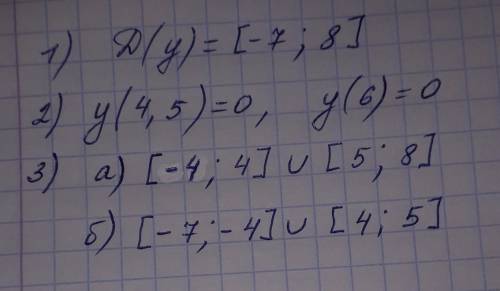 1) D(y) = [-7; 8]
2) y(4,5)=0, y(6)=0
3) а) [-4; 4] ∪ [5; 8]
б) [-7; -4] ∪ [4; 5]